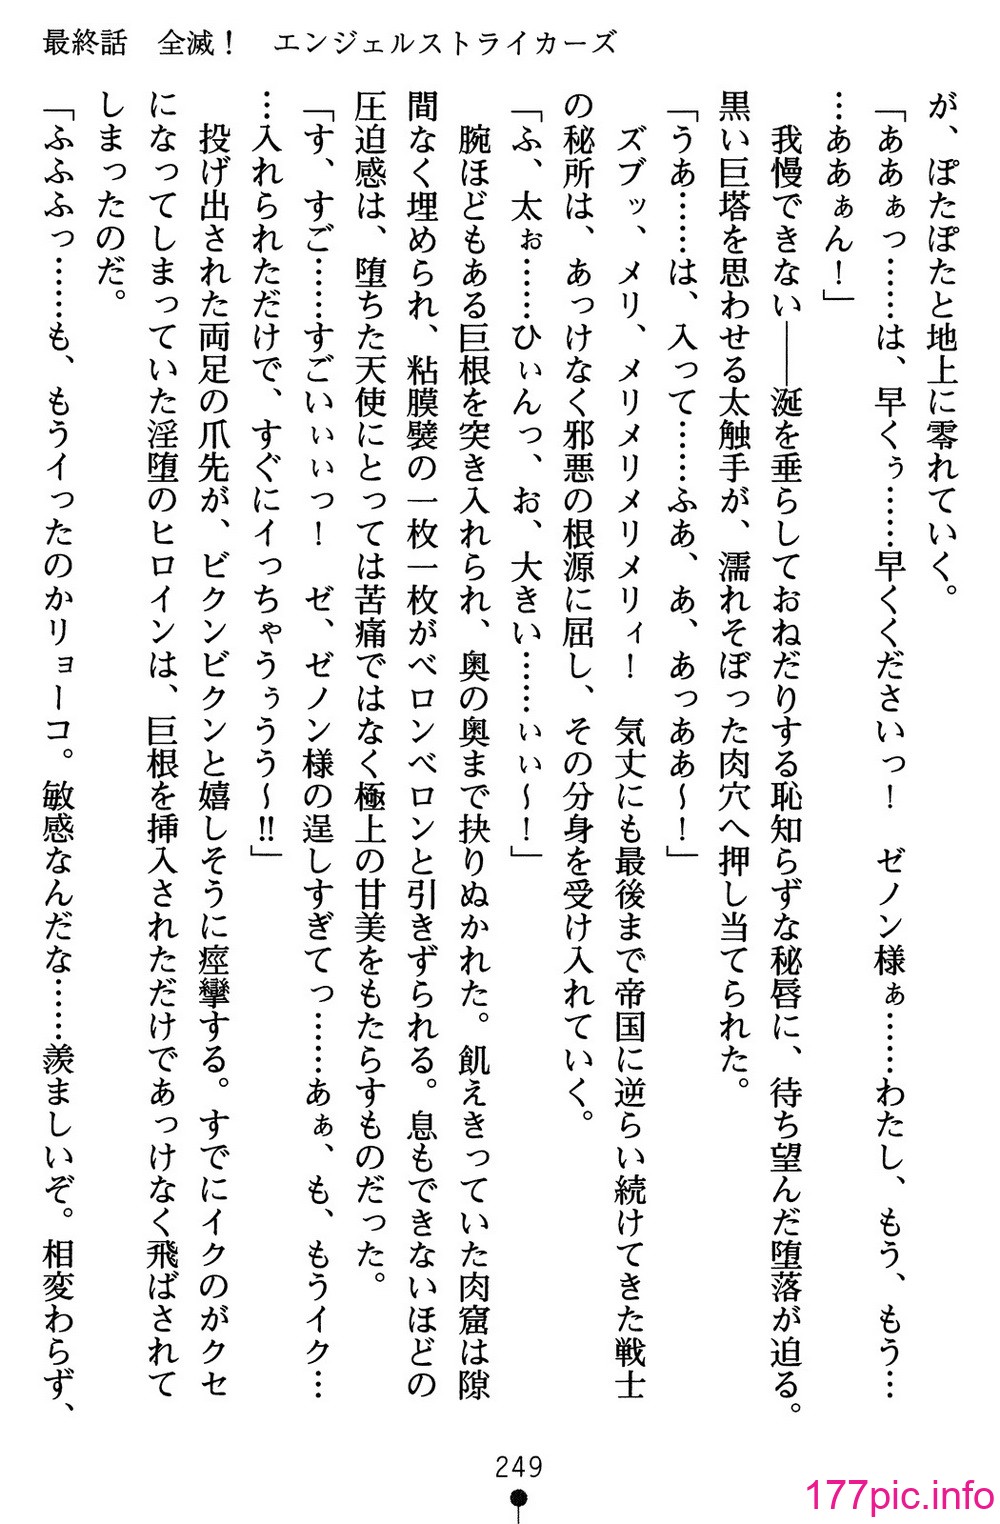 最終話　全滅！　エンジェルストライカーズ
が、ぽたぽたと地上に零れていく。
「ああぁっ……は、早くぅ……早くくださいっ！　ゼノン様ぁ……わたし、もう、もう…
…ああぁん！」
　我慢できない――涎を垂らしておねだりする恥知らずな秘唇に、待ち望んだ堕落が迫る。
黒い巨塔を思わせる太触手が、濡れそぼった肉穴へ押し当てられた。
「うあ……は、入って……ふあ、あ、あっああ～！」
　ズブッ、メリ、メリメリメリメリィ！　気丈にも最後まで帝国に逆らい続けてきた戦士
の秘所は、あっけなく邪悪の根源に屈し、その分身を受け入れていく。
「ふ、太ぉ……ひぃんっ、お、大きい……ぃぃ～！」
　腕ほどもある巨根を突き入れられ、奥の奥まで抉りぬかれた。飢えきっていた肉窟は隙
間なく埋められ、粘膜襞の一枚一枚がベロンベロンと引きずられる。息もできないほどの
圧迫感は、堕ちた天使にとっては苦痛ではなく極上の甘美をもたらすものだった。
「す、すご……すごいぃぃっ！　ゼ、ゼノン様の逞しすぎてっ……あぁ、も、もうイク…
…入れられただけで、すぐにイっちゃうぅうう～!!」
　投げ出された両足の爪先が、ビクンビクンと嬉しそうに痙攣する。すでにイクのがクセ
になってしまっていた淫堕のヒロインは、巨根を挿入されただけであっけなく飛ばされて
しまったのだ。
「ふふふっ……も、もうイったのかリョーコ。敏感なんだな……羨ましいぞ。相変わらず、
249
177pic.info